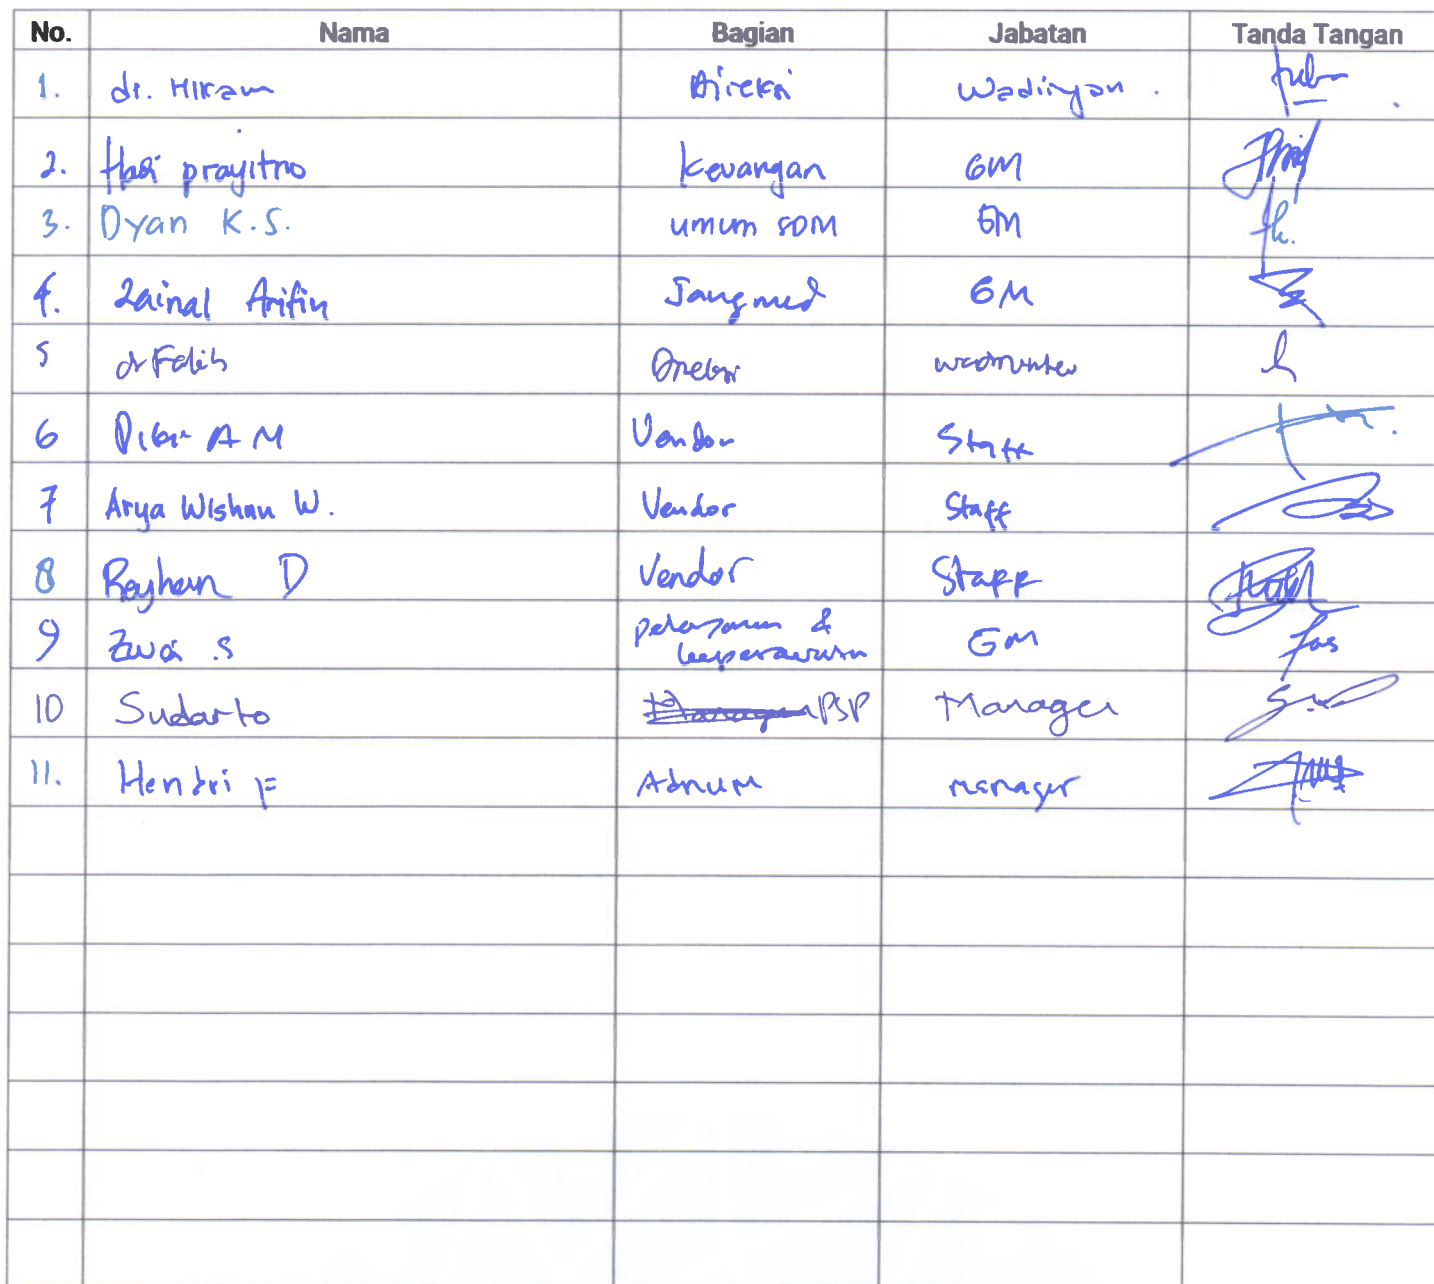 No. Nama Bagian Jabatan Tanda Tangan
1. dr. Hikam Direksi Wadiryan.
2. Hadi prayitno keuangan GM
3. Dyan K.S. umum SDM GM
4. Zainal Arifin Jangmed GM
5 dr Falih Direksi
6 A M Vendor Staff
7 Arya Wishnu W. Vendor Staff
8 Reyhan D Vendor Staff
9 S pelayanan &
keperawatan GM
10 Sudarto PSP Manager
11. Hendri F Adnum manager